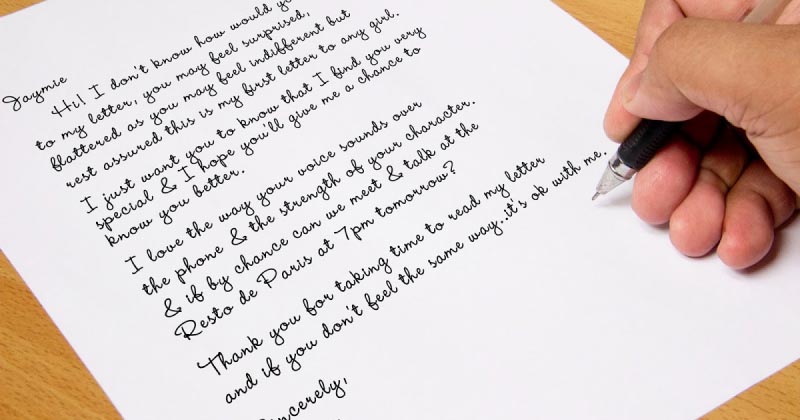 Jaymie
Hi! I don't know how would yo
to my letter, you may feel surprised,
flattered as you may feel indifferent but
rest assured this is my first letter to any girl.
I just want you to know that I find you very
special & I hope you'll give me a chance to
know you better.
I love the way your voice sounds over
the phone & the strength of your character.
& if by chance can we meet & talk at the
Resto de Paris at 7pm tomorrow?
Thank you for taking time to read my letter
and if you don't feel the same way...it's ok with me.
Sincerely,